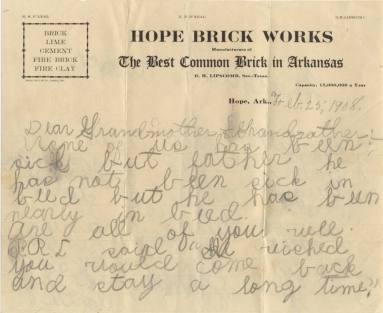 HOPE BRICK WORKS
Manufacturers of
The Best Common Brick in Arkansas
BRICK
LIME
CEMENT
FIRE BRICK
FIRE CLAY
Capacity, 15,000,000 a Year
Hope, Ark., Feb 25, 1908.
Dear Grandmother & Grandfather:
None of us has been
sick but father he
has not been sick in
bed but he has been
nearly in bed.
Are all of you well.
said "I wished
you would come back
and stay a long time."